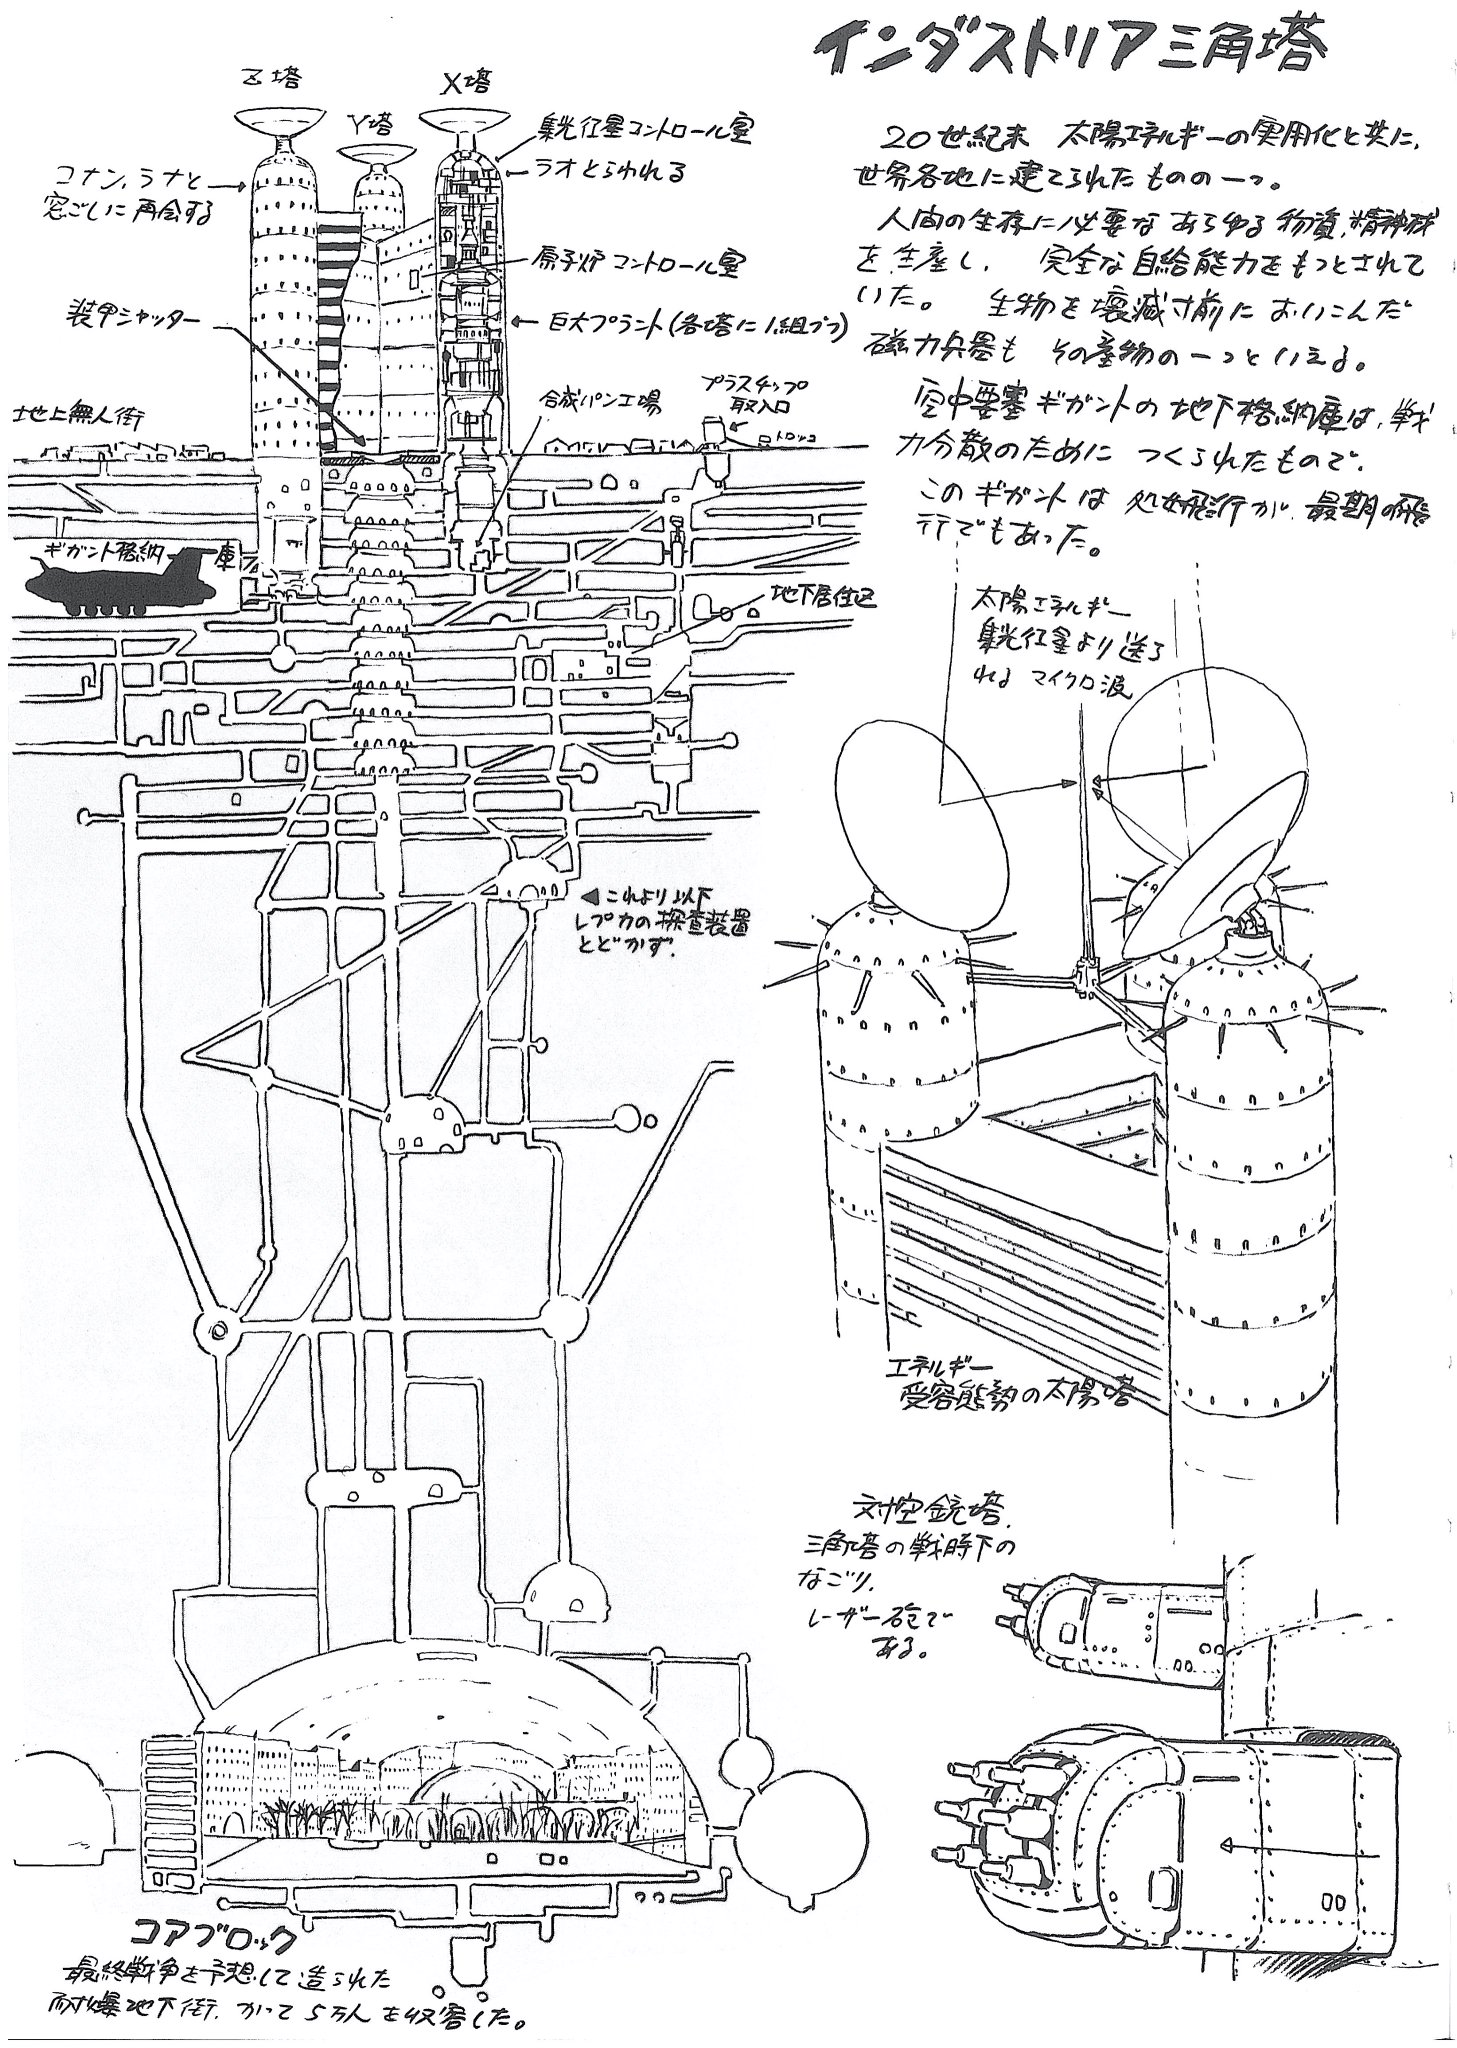 インダストリア三角塔
Z塔
Y塔
X塔
コナン、ラナと
窓ごしに再会する
集光衛星コントロール室
ラオとらわれる
原子炉コントロール室
装甲シャッター
巨大プラント(各塔に1組づつ)
地上無人街
合成パン工場
プラスチップ
取入口
トロッコ
ギガント格納庫
地下居住区
20世紀末 太陽エネルギーの実用化と共に、
世界各地に建てられたものの一つ。
人間の生存に必要なあらゆる物資、精神域
を生産し、 完全な自給能力をもつとされて
いた。 生物を壊滅寸前においこんだ
磁力兵器も その産物の一つといえる。
空中要塞ギガントの地下格納庫は、戦
力分散のために つくられたもので、
このギガントは 処女飛行が、最期の飛
行でもあった。
太陽エネルギー
集光衛星より送ら
れる マイクロ波
◀これより以下
レプカの探査装置
とどかず.
エネルギー
受容態勢の太陽塔
対空銃塔.
三角塔の戦時下の
なごり.
レーザー砲で
ある。
コアブロック
最終戦争を予想して造られた
耐爆地下街. かつて5万人を収容した。